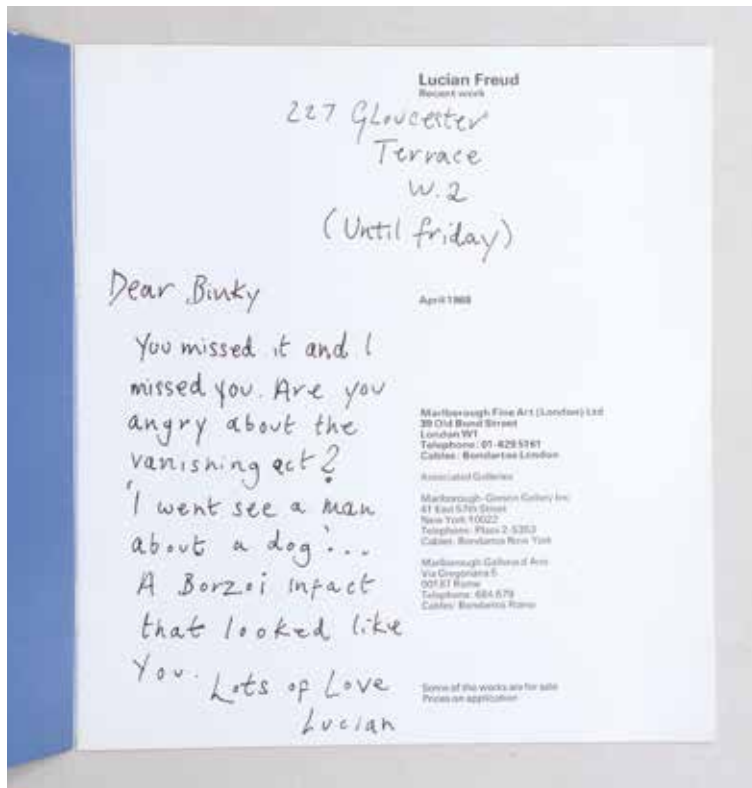 Lucian Freud
Recent work
227 Gloucester
Terrace
W.2
(Until friday)
Dear Binky
April 1968
You missed it and I
missed you. Are you
angry about the
vanishing act?
'I went see a man
about a dog'...
A Borzoi infact
that looked like
You.
Lots of Love
Lucian
Marlborough Fine Art (London) Ltd
39 Old Bond Street
London W1
Telephone: 01-629 5161
Cables: Bondartos London
Associated Galleries
Marlborough-Gerson Gallery Inc
41 East 57th Street
New York 10022
Telephone: Plaza 2-5353
Cables: Bondartos New York
Marlborough Galleria d'Arte
Via Gregoriana 5
00187 Rome
Telephone: 684.579
Cables: Bondartos Roma
Some of the works are for sale
Prices on application